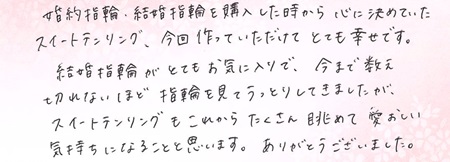 婚約指輪、結婚指輪を購入した時から心に決めていた
スイートテンリング、今回作っていただけてとても幸せです。
結婚指輪がとてもお気に入りで、今まで数え
切れないほど指輪を見てうっとりしてきましたが、
スイートテンリングもこれからたくさん眺めて愛おしい
気持ちになることと思います。ありがとうございました。